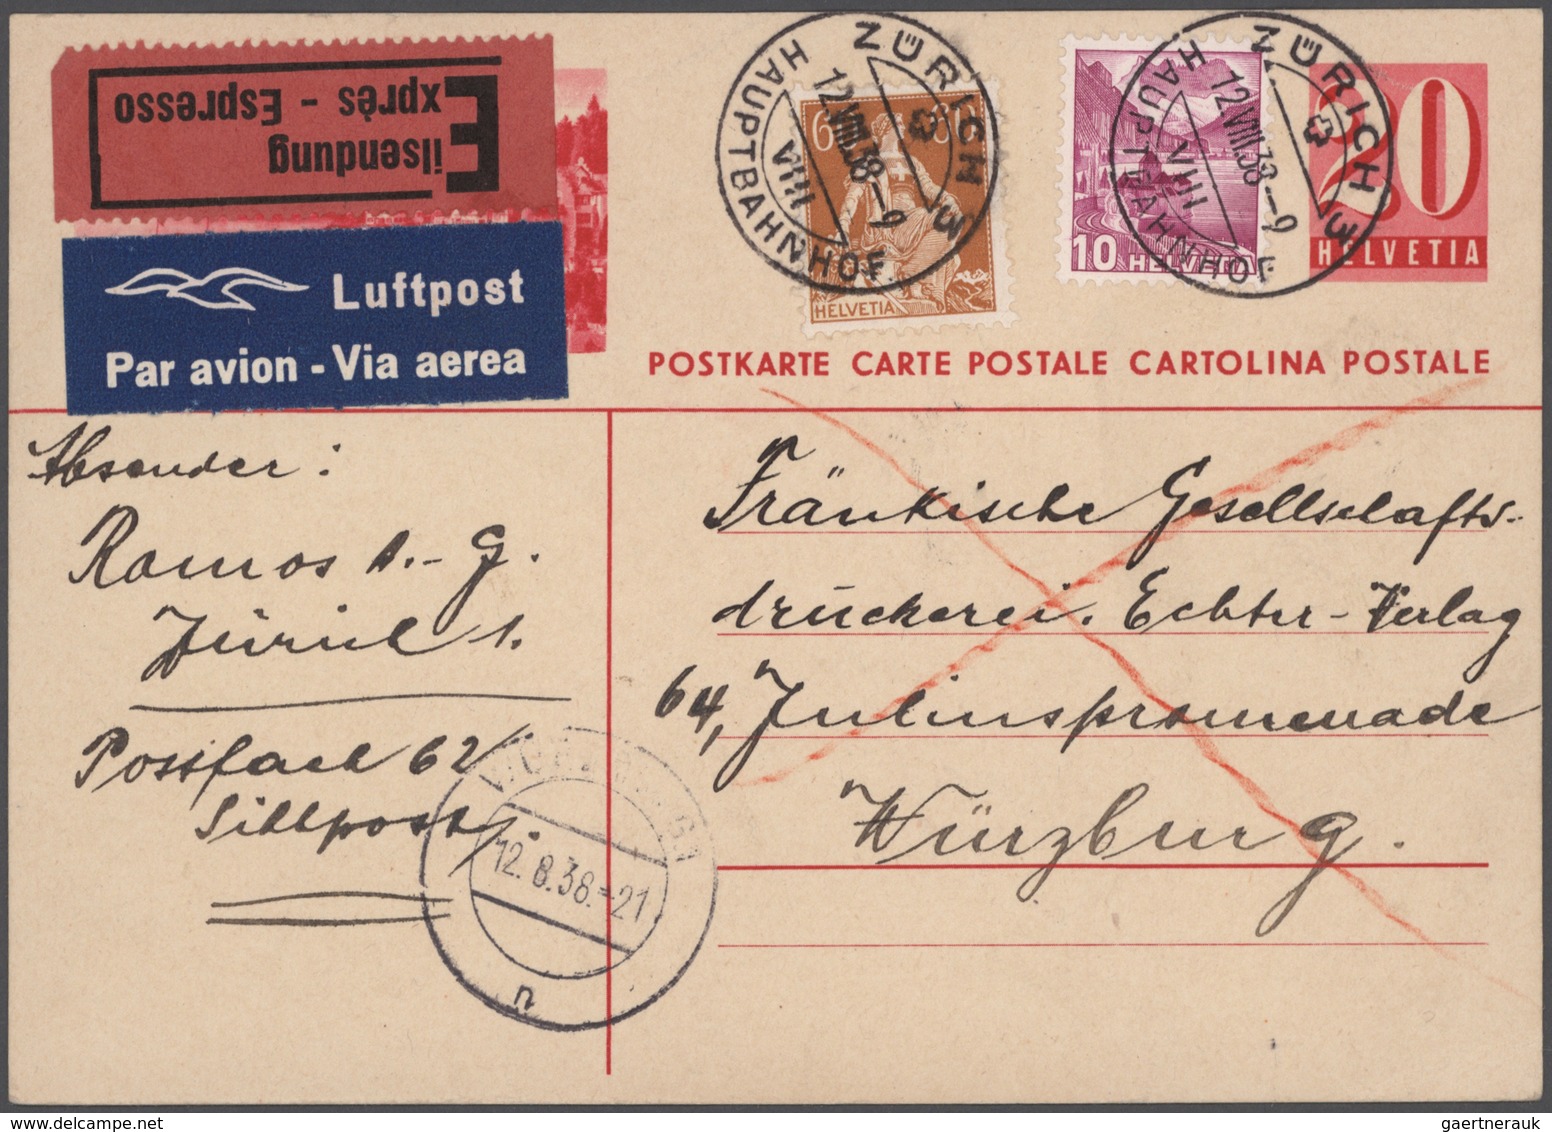 Eilsendung
Exprès - Espresso
Luftpost
Par avion - Via aerea
ZÜRICH 3
12.VIII.38-9
VIII
HAUPTBAHNHOF
HELVETIA
ZÜRICH 3
12.VIII.38-9
VIII
HAUPTBAHNHOF
10 HELVETIA
20
HELVETIA
POSTKARTE CARTE POSTALE CARTOLINA POSTALE
Absender:
Ramos A.-G.
Zürich 1.
Postfach 62
Sihlpost
WÜRZBURG 1
12.8.38.-21
n
Fränkische Gesellschafts-
druckerei. Echter-Verlag
64, Juliuspromenade
Würzburg.
gaertnerauk / Delcampe.net